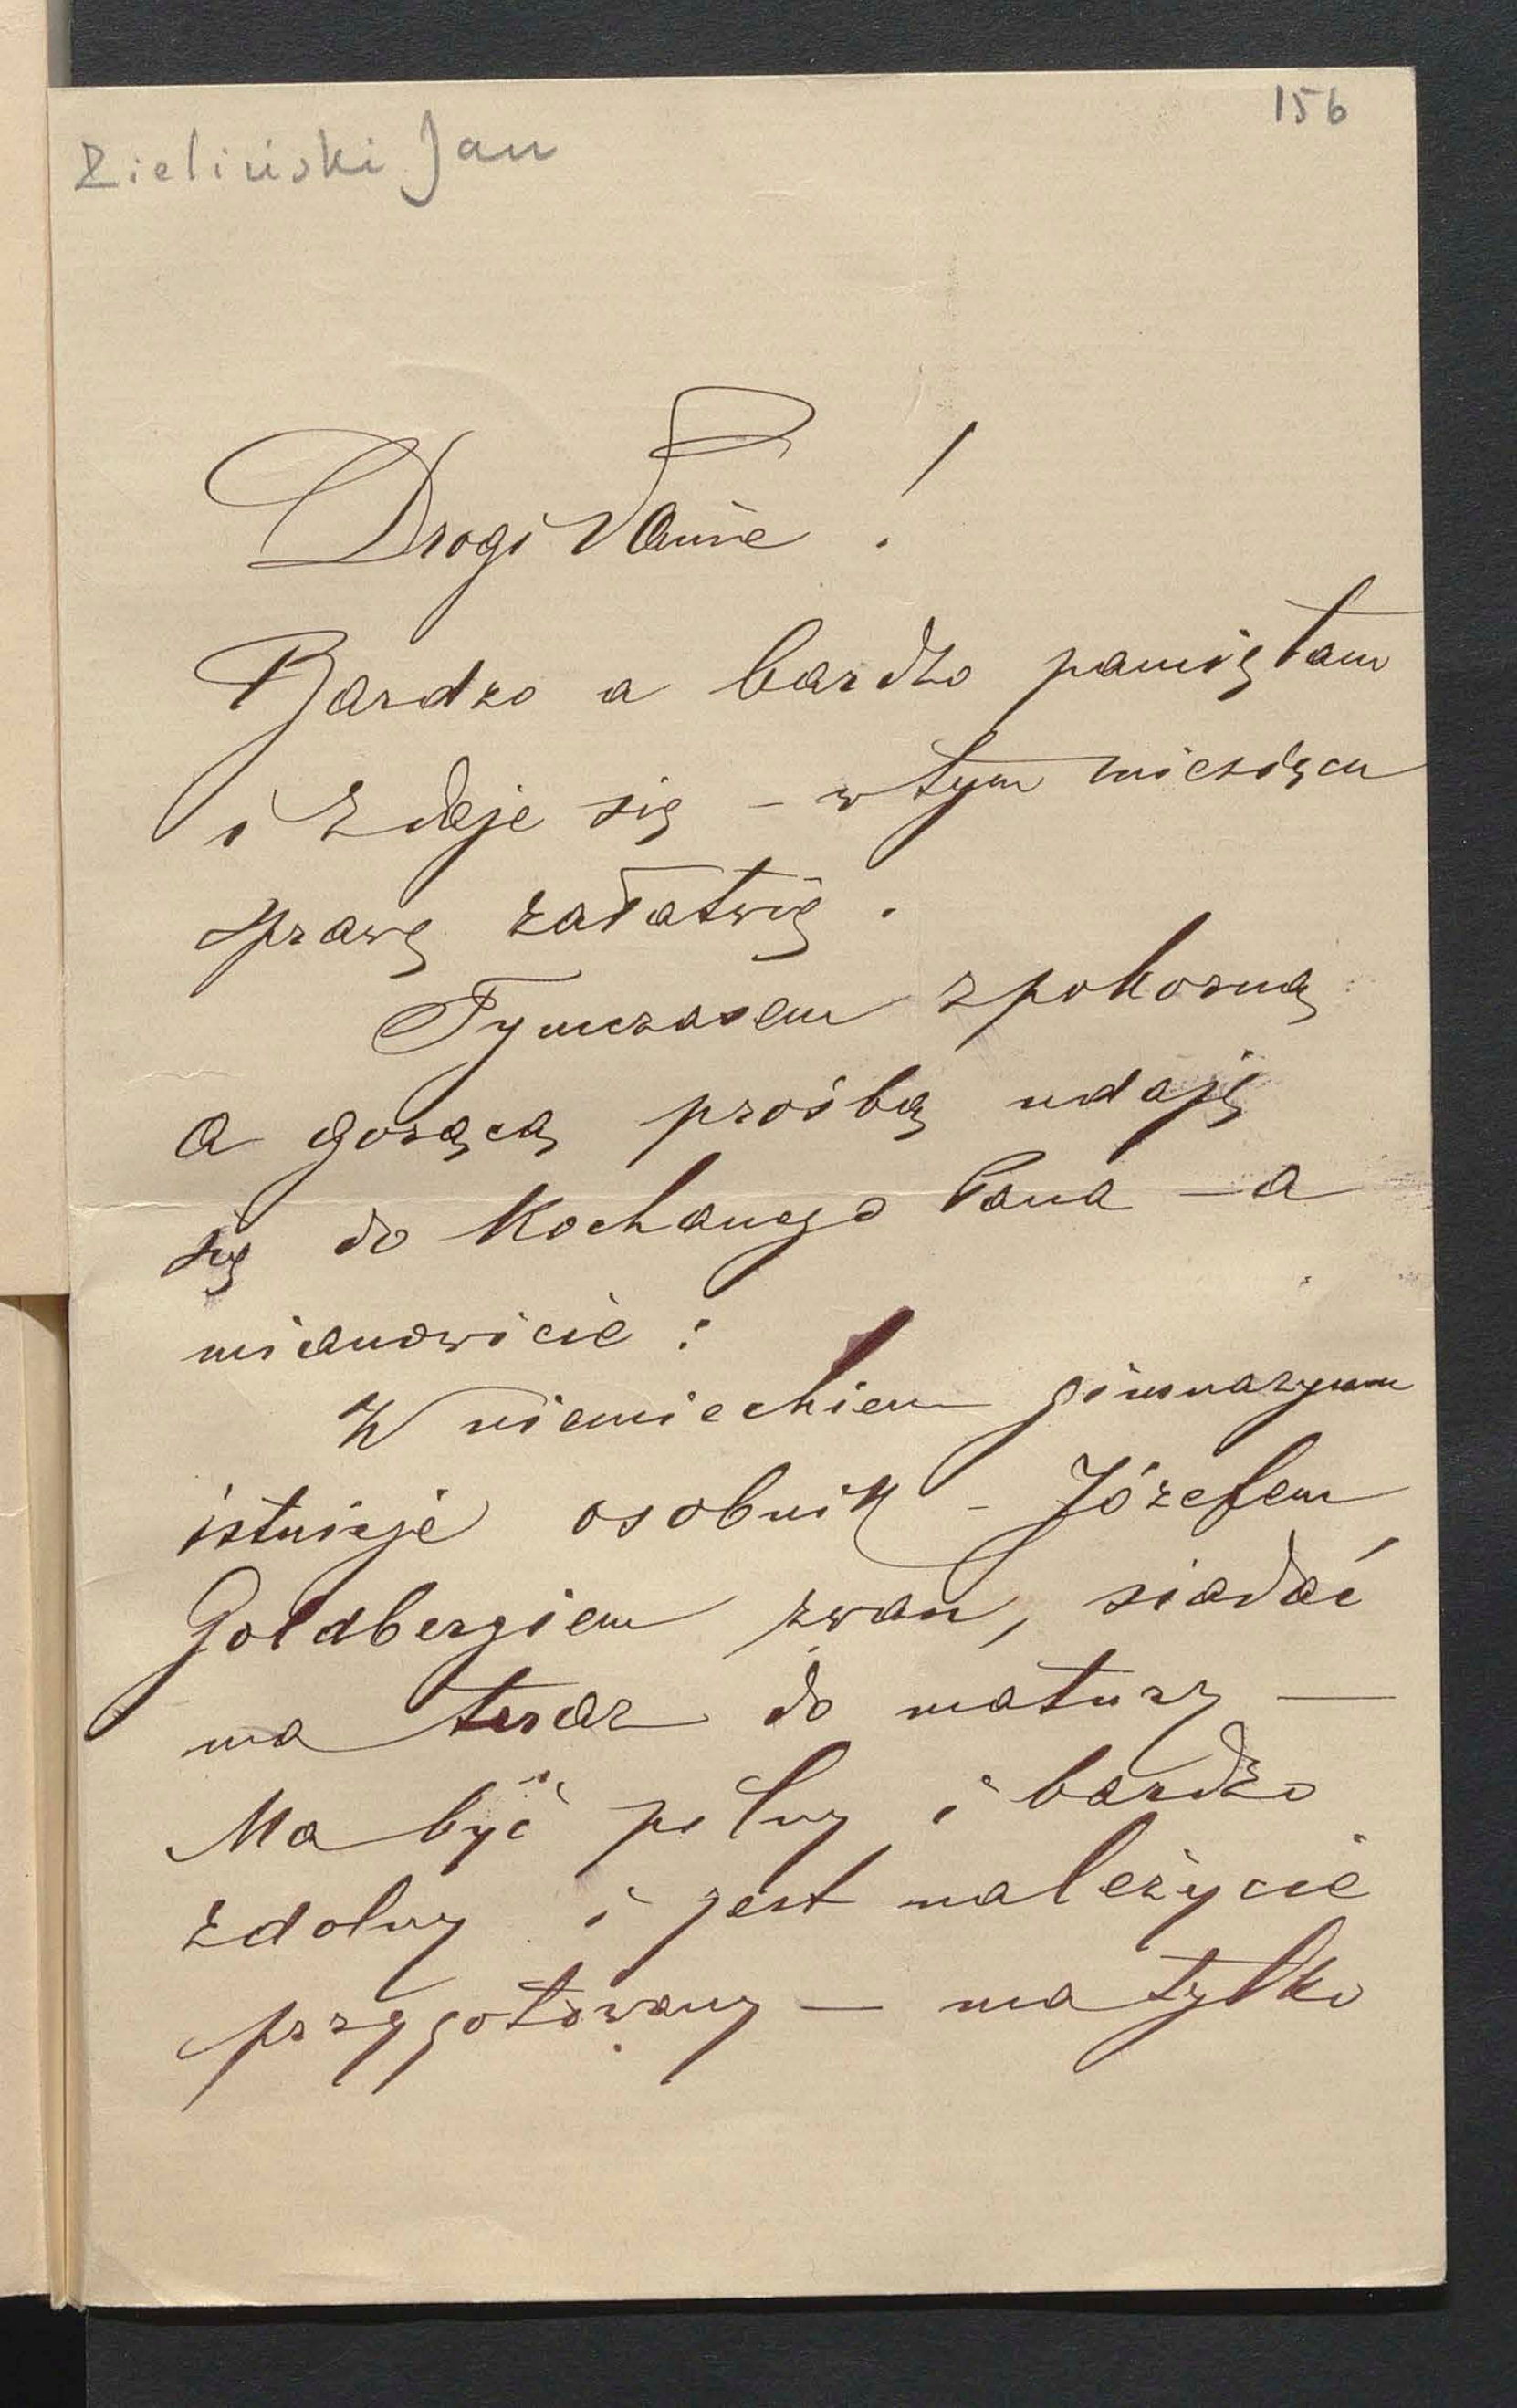 156
Zieliński Jan
Drogi Panie!
Bardzo a bardzo pamiętam
i zdaje się – w tym miesiącu
sprawę załatwię.
Tymczasem z pokorną
a gorącą prośbą udaję
się do Kochanego Pana – a
mianowicie:
W niemieckiem gimnazyum
istnieje osobnik – Józefem
Goldbergiem zwan, siadać
ma teraz do matury —
Ma być pilny i bardzo
zdolny i jest należycie
przygotowany — ma tylko